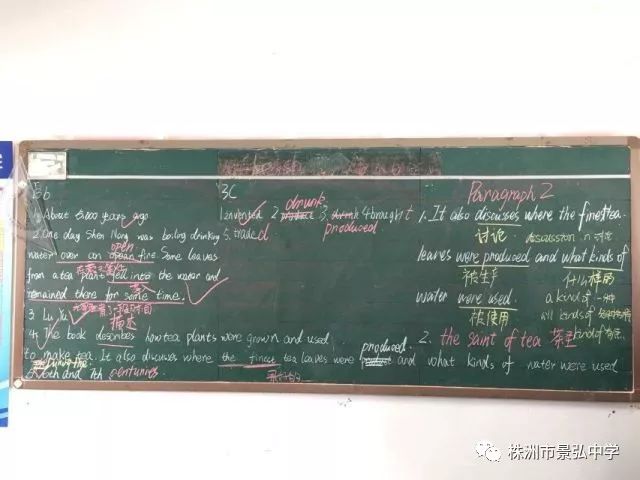 3b
3C
drunk
Paragraph 2
1. About 5000 years ago
1 invented 2 3 4 brought
5. traded
produced
1. It also discusses where the finest tea
讨论 discussion n 讨论
2. One day Shen Nong was boiling drinking
open
water over an fire. Some leaves
from a tea plant fell into the water and
remained there for some time.
leaves were produced and what kinds of
被生产 什么样的
water were used. a kind of 一种
被使用 all kinds of
kind of
3. Lu Yu
描述
4. The book describes how tea plants were grown and used
2. the saint of tea 茶圣
to make tea. It also discusses where the finest tea leaves were produced and what kinds of water were used
6th and 7th centuries
株洲市景弘中学